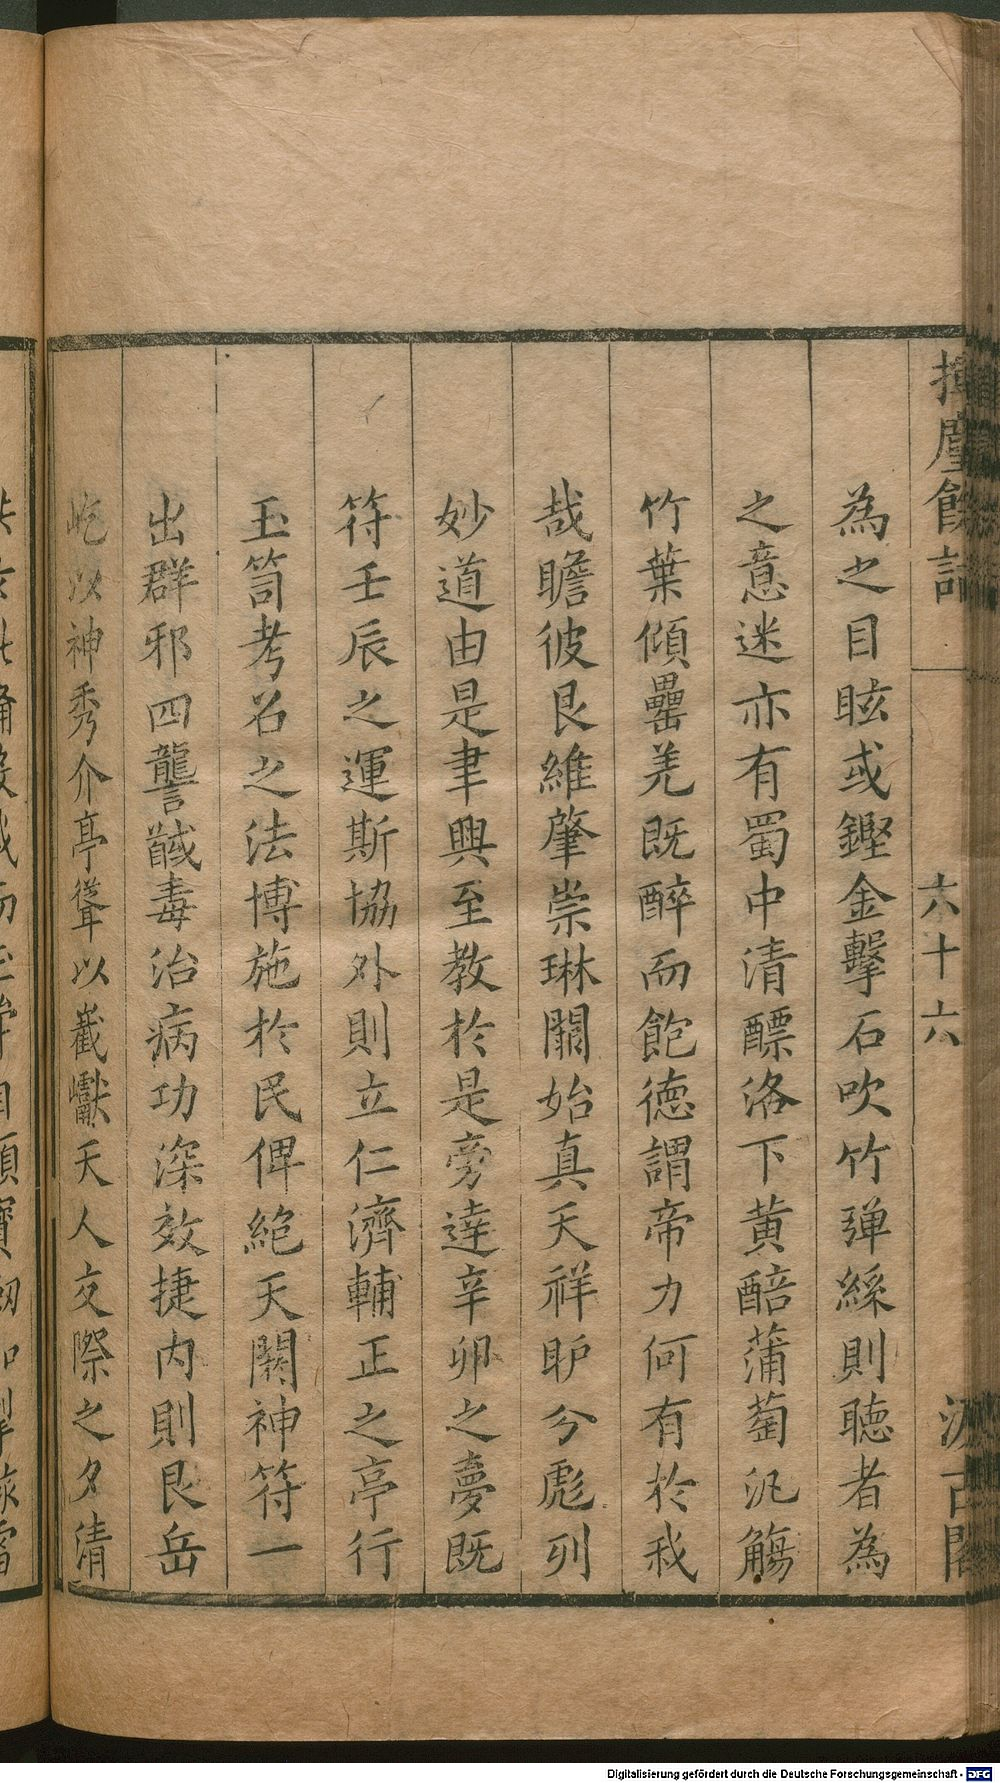 揮麈餘話
六十六
汲古閣
為之目眩或鏗金擊石吹竹彈絲則聽者為
之意迷亦有蜀中清醥洛下黃醅蒲萄汎觴
竹葉傾罍羌既醉而飽德謂帝力何有於我
哉瞻彼艮維肇崇琳闕始真天祥昈分彪列
妙道由是聿興至教於是旁達辛卯之夢既
符壬辰之運斯協外則立仁濟輔正之亭行
玉笥考召之法博施於民俾絕天閼神符一
出群邪四讋馘毒治病功深效捷內則艮岳
屹以神秀介亭聳以巀巘天人交際之夕清